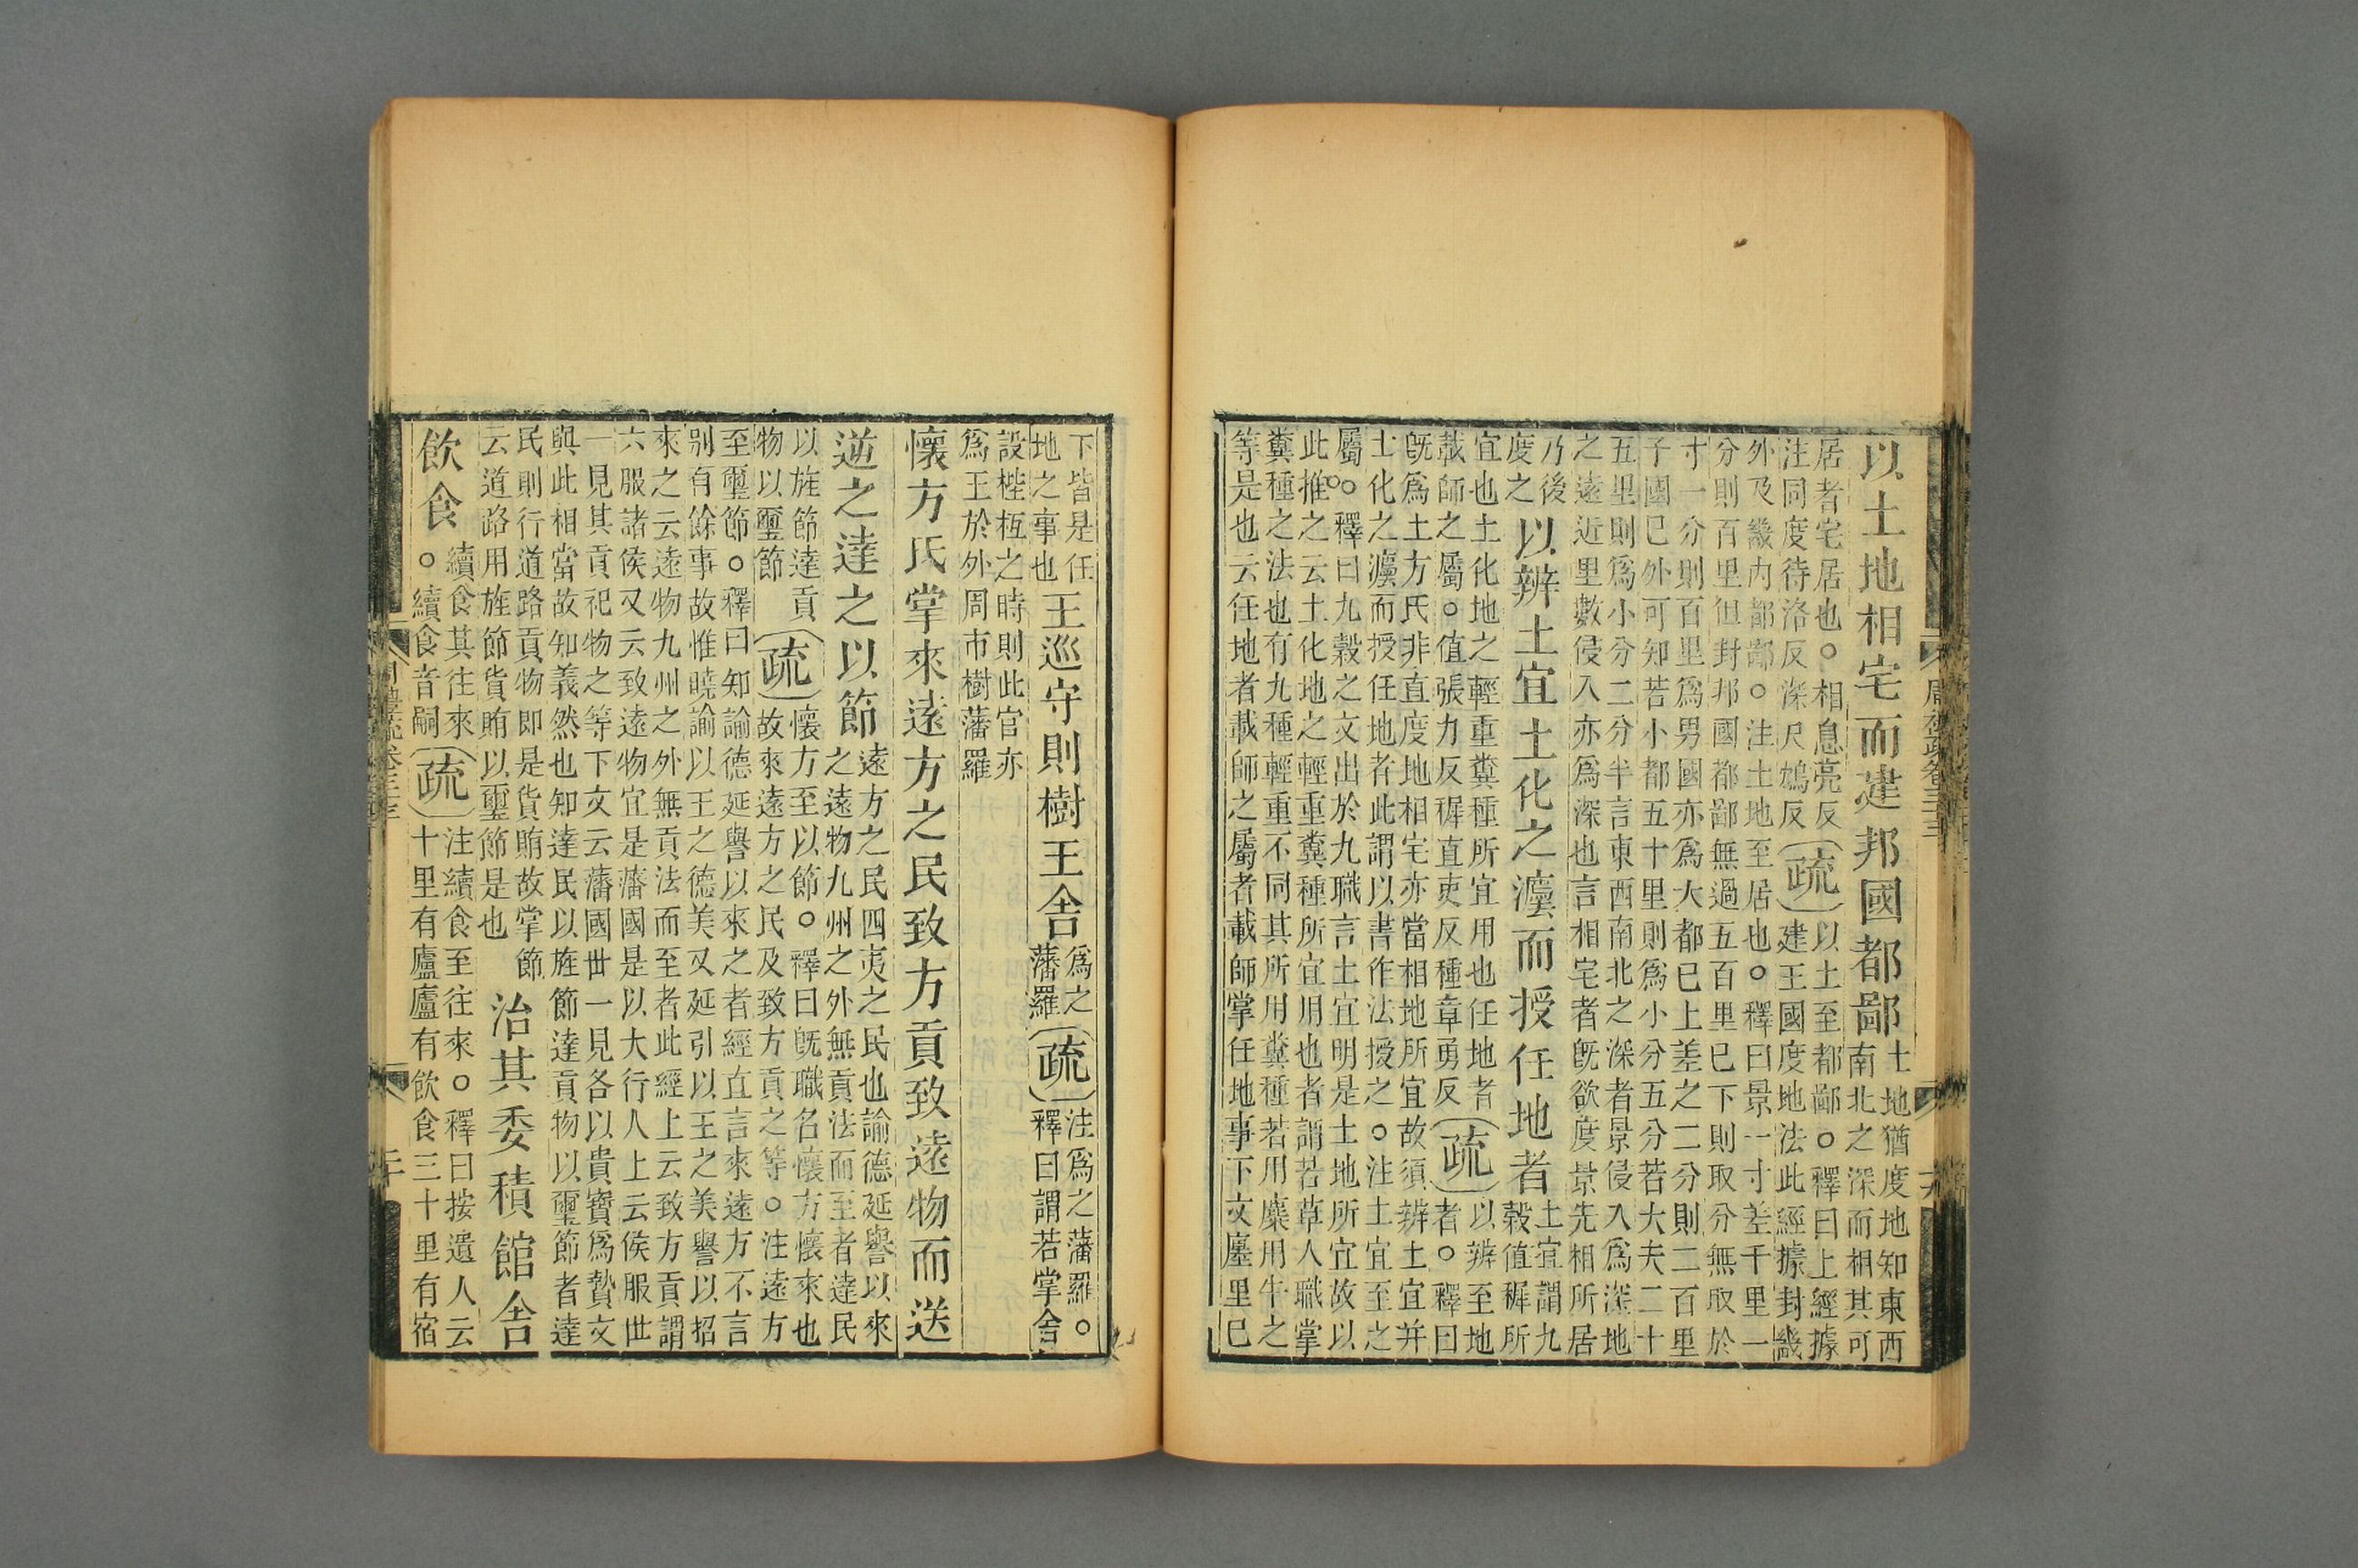 以土地相宅而建邦國都鄙土地猶度地知東西
南北之深而相其可
居者宅居也○相息亮反
注同度待洛反深尺鴆反疏以土至都鄙○釋曰上經據
建王國度地法此經據封畿
外及畿内都鄙○注土地至居也○釋曰景一寸差千里一
分則百里但封邦國都鄙無過五百里已下則取分無取於
寸一分則百里爲男國亦爲大都已上差之二分則二百里
子國已外可知若小都五十里則爲小分五分若大夫二十
五里則爲小分二分半言東西南北之深者景侵入爲深地
之遠近里數侵入亦爲深也言相宅者旣欲度景先相所居
乃後
度之以辨土宜土化之灋而授任地者土宜謂九
穀值稺所
宜也土化地之輕重糞種所宜用也任地者
載師之屬○值張力反稺直吏反種章勇反疏以辨至地
者○釋曰
旣爲土方氏非直度地相宅亦當相地所宜故須辨土宜并
土化之灋而授任地者此謂以書作法授之○注土宜至之
屬○釋曰九穀之文出於九職言土宜明是土地所宜故以
此推之云土化地之輕重糞種所宜用也者謂若草人職掌
糞種之法也有九種輕重不同其所用糞種若用麋用牛之
等是也云任地者載師之屬者載師掌任地事下文廛里已
下皆是任
地之事也王巡守則樹王舍爲之
藩羅疏注爲之藩羅○
釋曰謂若掌舍
設梐枑之時則此官亦
爲王於外周帀樹藩羅
懷方氏掌來遠方之民致方貢致遠物而送
逆之達之以節遠方之民四夷之民也諭德延譽以來
之遠物九州之外無貢法而至者達民
以旌節達貢
物以璽節疏懷方至以節○釋曰旣職名懷方懷來也
故來遠方之民及致方貢之等○注遠方
至璽節○釋曰知諭德延譽以來之者經直言來遠方不言
別有餘事故惟曉諭以王之德美又延引以王之美譽以招
來之云遠物九州之外無貢法而至者此經上云致方貢謂
六服諸侯又云致遠物宜是藩國是以大行人上云侯服世
一見其貢祀物之等下文云藩國世一見各以貴寶爲贄文
與此相當故知義然也知達民以旌節達貢物以璽節者達
民則行道路貢物即是貨賄故掌節
云道路用旌節貨賄以璽節是也治其委積館舍
飲食續食其往來
○續食音嗣疏注續食至往來○釋曰按遺人云
十里有廬廬有飲食三十里有宿